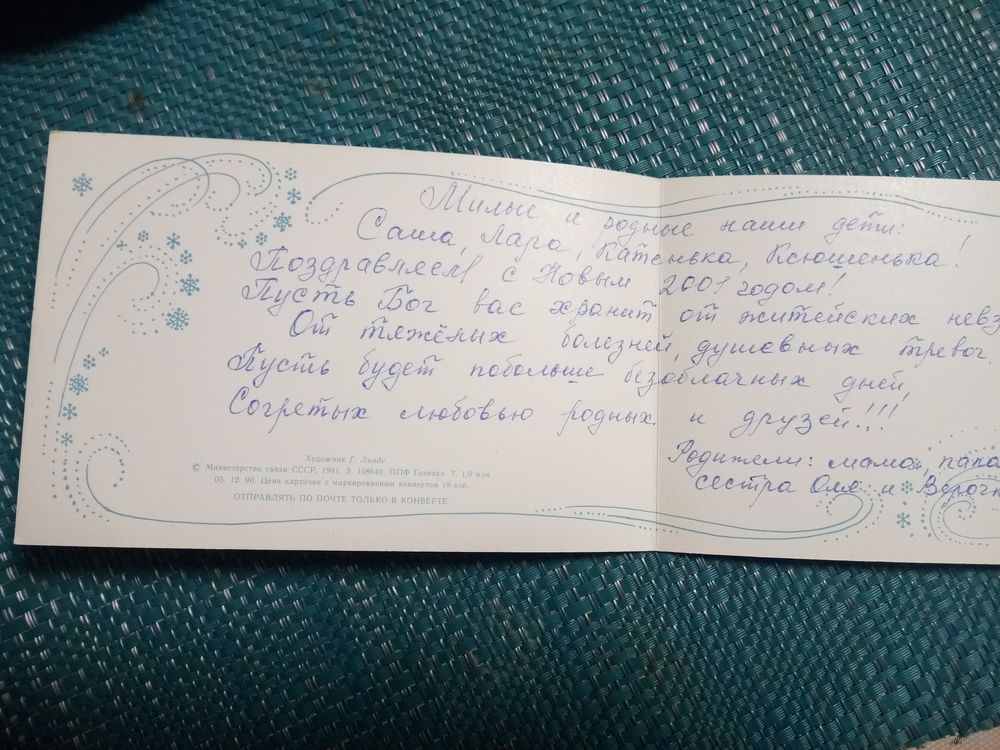 Милые и родные наши дети:
Саша, Лара, Катенька, Ксюшенька!
Поздравляем с Новым 2001 годом!
Пусть Бог вас хранит от житейских невз
От тяжёлых болезней, душевных тревог.
Пусть будет побольше безоблачных дней,
Согретых любовью родных и друзей!!!
Родители: мама, папа
сестра Оля и Верочк
Художник Г. Линде
© Министерство связи СССР, 1991. З. 108640. ППФ Гознака. Т. 1,9 млн.
05. 12. 90. Цена карточки с маркированным конвертом 19 коп.
ОТПРАВЛЯТЬ ПО ПОЧТЕ ТОЛЬКО В КОНВЕРТЕ.